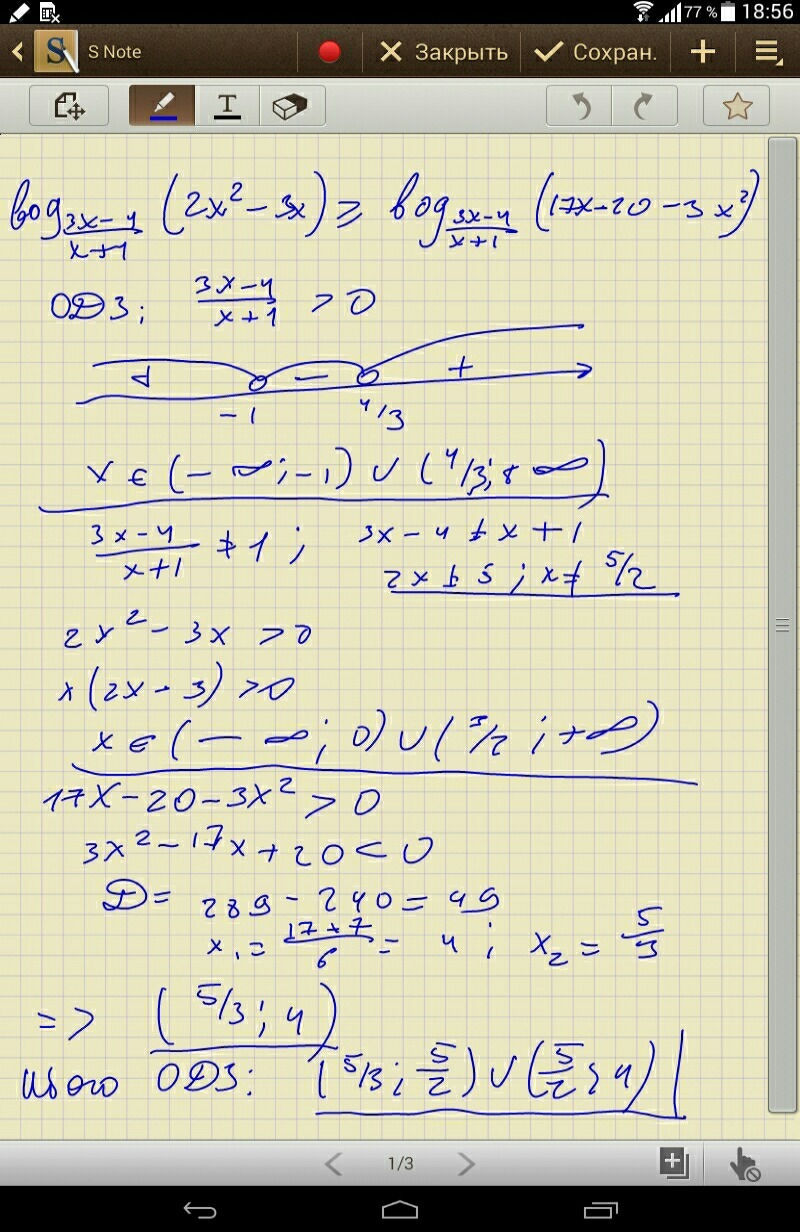 77 % 18:56
S Note Закрыть Сохран.
T
log_{(3x-4)/(x+1)} (2x² - 3x) ≥ log_{(3x-4)/(x+1)} (17x-20-3x²)
ОДЗ; (3x-4)/(x+1) > 0
+ - +
-1 4/3
x ∈ (-∞; -1) ∪ (4/3; ∞)
(3x-4)/(x+1) ≠ 1; 3x-4 ≠ x+1
2x ≠ 5; x ≠ 5/2
2x² - 3x > 0
x(2x-3) > 0
x ∈ (-∞; 0) ∪ (3/2; +∞)
17x-20-3x² > 0
3x²-17x+20 < 0
D = 289-240 = 49
x₁ = (17+7)/6 = 4; x₂ = 5/3
=> (5/3; 4)
Итого ОДЗ: (5/3; 5/2) ∪ (5/2; 4)
1/3